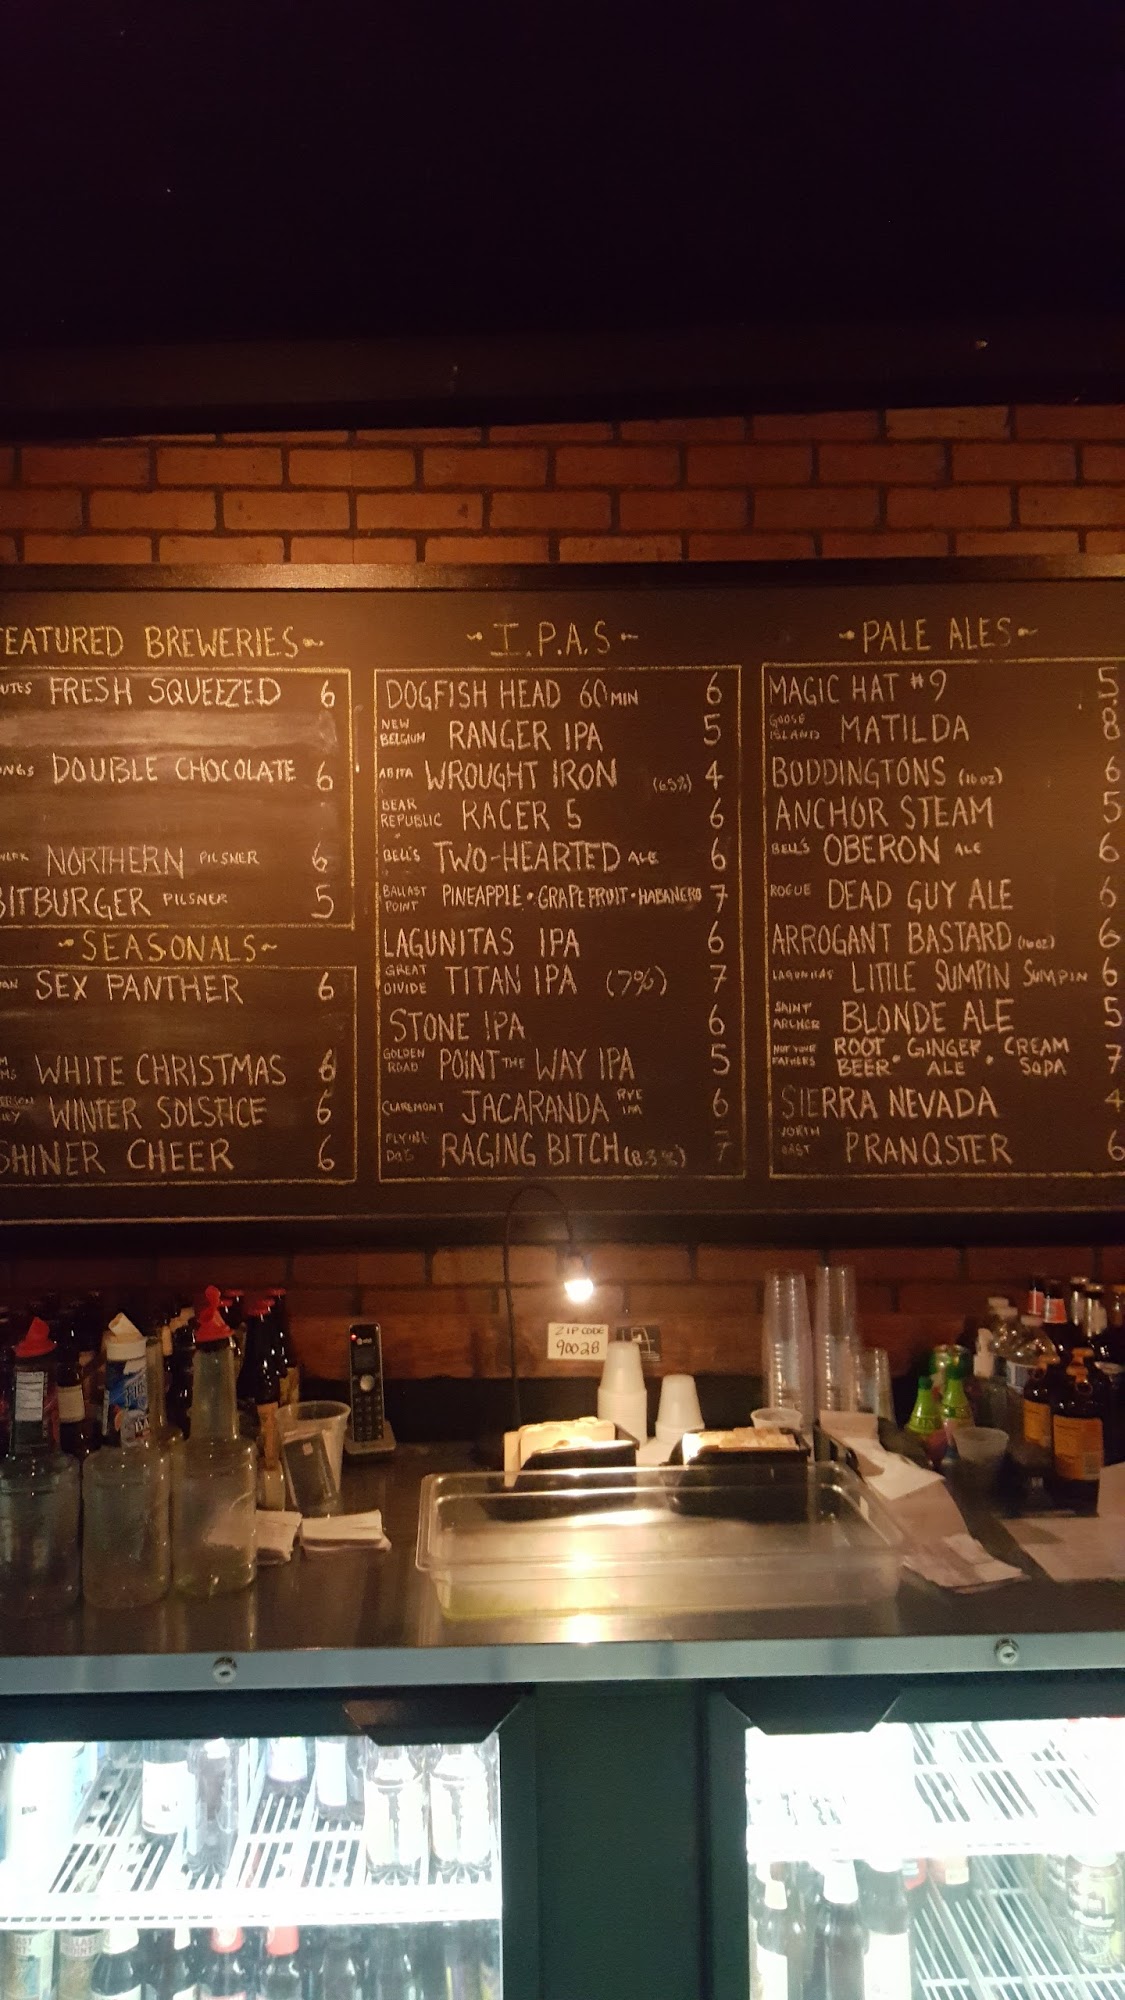 FEATURED BREWERIES~
UTES FRESH SQUEEZED 6
UNGS DOUBLE CHOCOLATE 6
NORTHERN PILSNER 6
BITBURGER PILSNER 5
~SEASONALS~
SEX PANTHER 6
WHITE CHRISTMAS 6
WINTER SOLSTICE 6
SHINER CHEER 6
~I.P.A.S~
DOGFISH HEAD 60 MIN 6
NEW BELGIUM RANGER IPA 5
ABITA WROUGHT IRON (6.5%) 4
BEAR REPUBLIC RACER 5 6
BELL'S TWO-HEARTED ALE 6
BALLAST POINT PINEAPPLE · GRAPEFRUIT · HABANERO 7
LAGUNITAS IPA 6
GREAT DIVIDE TITAN IPA (7%) 7
STONE IPA 6
GOLDEN ROAD POINT THE WAY IPA 5
CLAREMONT JACARANDA RYE IPA 6
FLYING DOG RAGING BITCH (8.3%) 7
~PALE ALES~
MAGIC HAT #9 5
GOOSE ISLAND MATILDA 8
BODDINGTONS (16 oz) 6
ANCHOR STEAM 5
BELL'S OBERON ALE 6
ROGUE DEAD GUY ALE 6
ARROGANT BASTARD (16oz) 6
LAGUNITAS LITTLE SUMPIN SUMPIN 6
SAINT ARCHER BLONDE ALE 5
NOT YOUR FATHERS ROOT BEER · GINGER ALE · CREAM SODA 7
SIERRA NEVADA 4
NORTH COAST PRANQSTER 6
ZIP CODE
90028